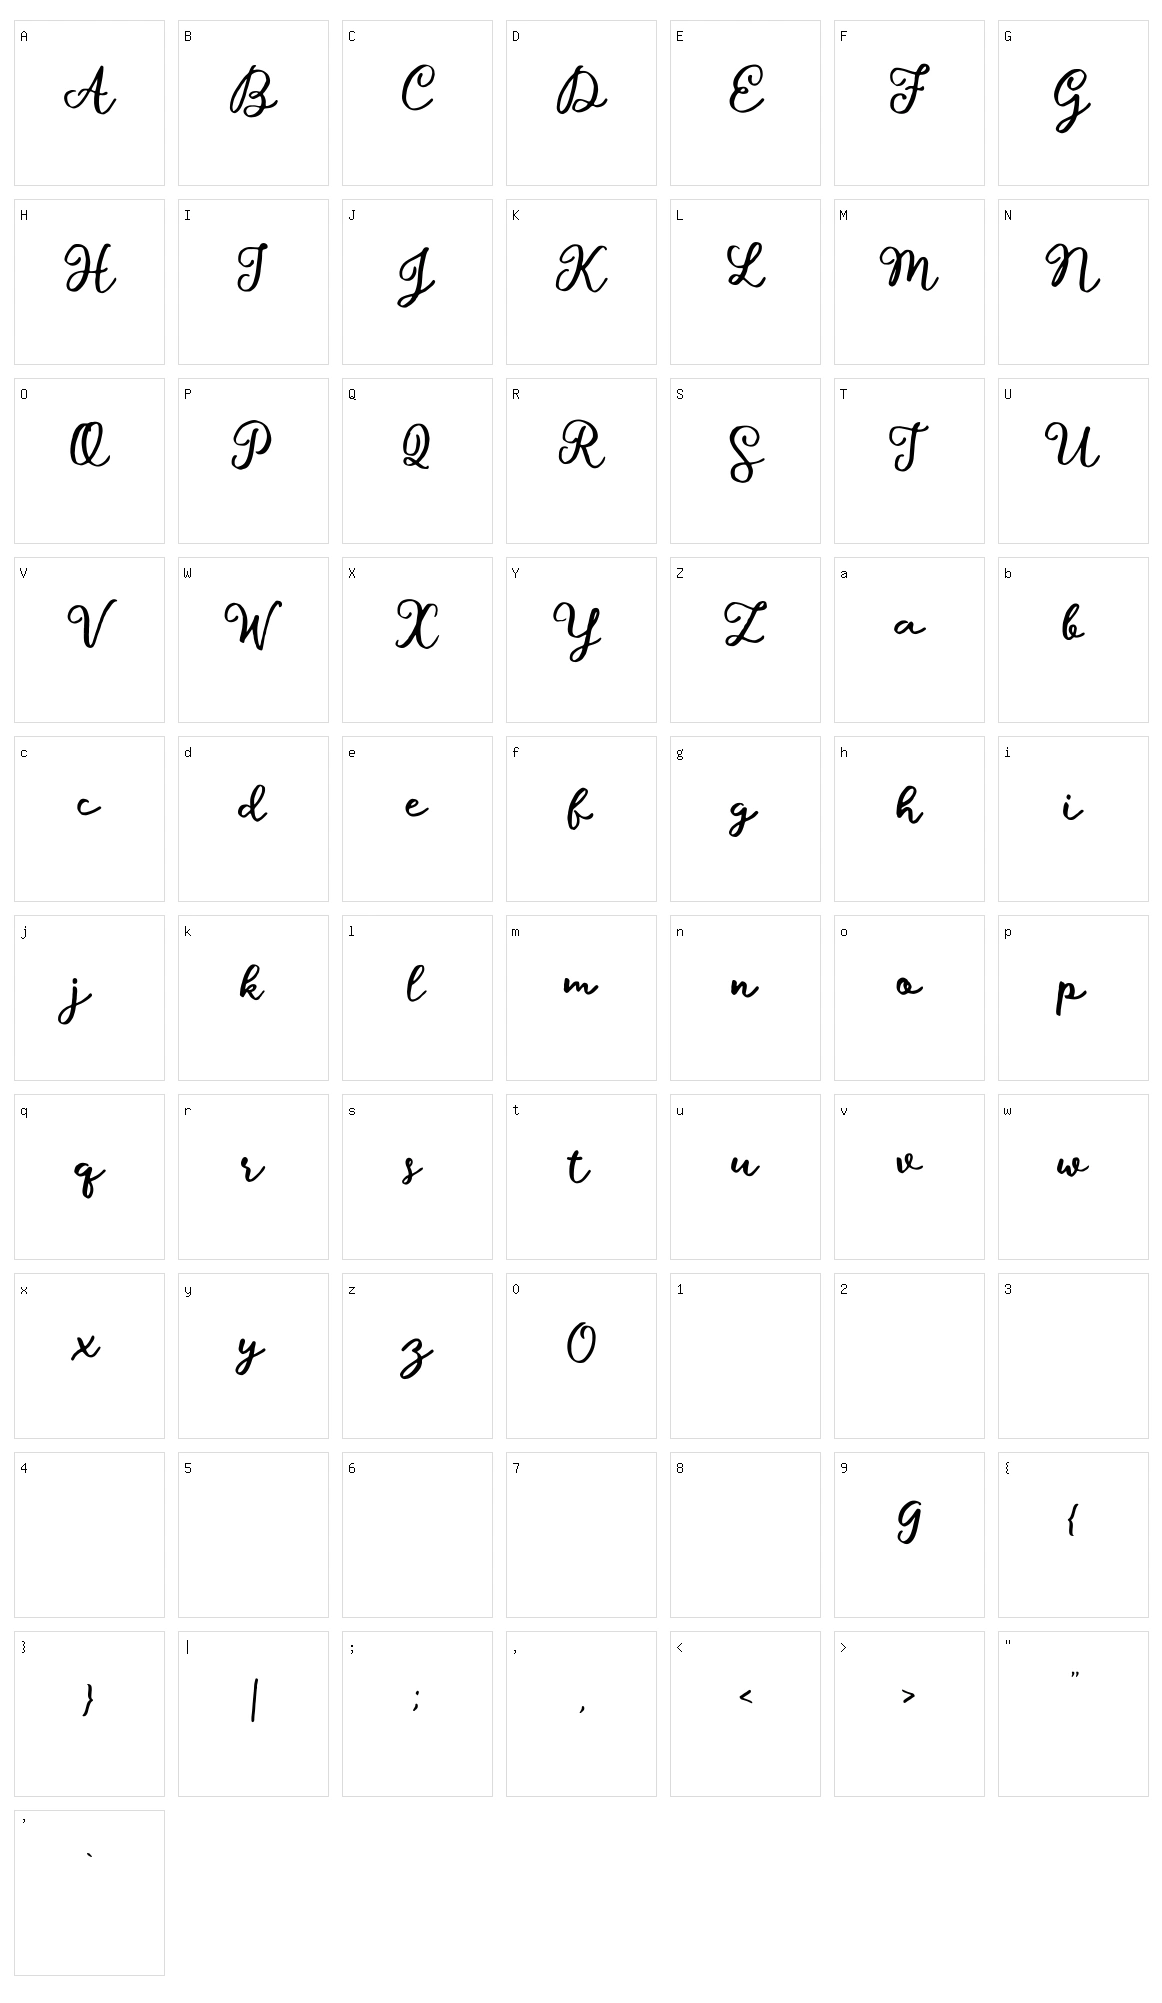 A B C D E F G
A B C D E F G
H I J K L M N
H I J K L M N
O P Q R S T U
O P Q R S T U
V W X Y Z a b
V W X Y Z a b
c d e f g h i
c d e f g h i
j k l m n o p
j k l m n o p
q r s t u v w
q r s t u v w
x y z 0 1 2 3
x y z 0
4 5 6 7 8 9 {
9 {
} | ; , < > "
} | ; , < > "
'
`